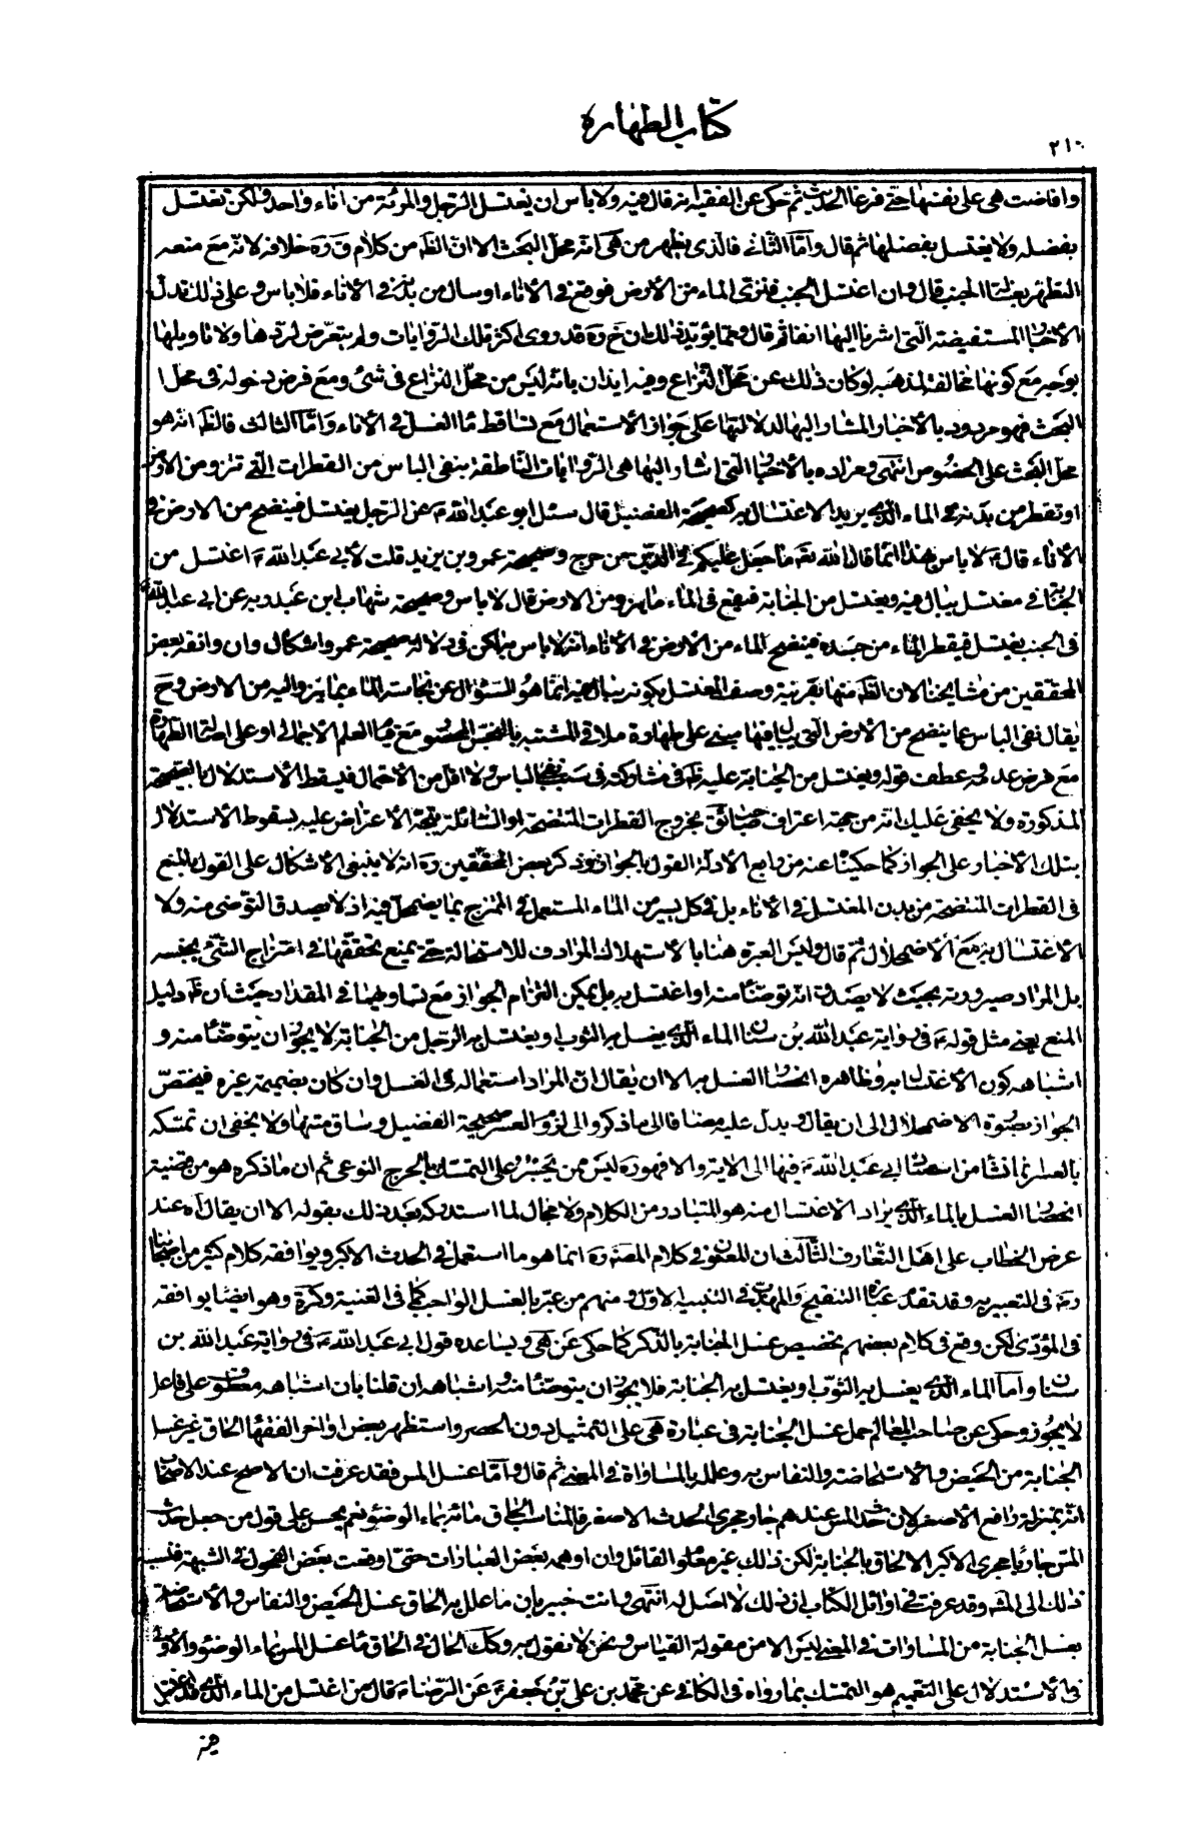 كتاب الطهارة
٢١٠
وافاضت هي على نفسها حتى فرغا الحديث ثم حكى عن الفقيه انه قال فيه ولا باس ان يغتسل الرجل والمرئة من اناء واحد ولكن تغتسل
بفضله ولا يغتسل بفضلها ثم قال وامّا الثاني فالذي يظهر من هي انه محلّ البحث الا انّ الظ من كلام ق ره خلافه لانّه مع منعه
التطهر بغسالة الجنب قال وان اغتسل الجنب فنزى الماء من الأرض فوقع في الأناء او سال من بدنه في الأناء فلا باس وعلى ذلك تدلّ
الأخبار المستفيضة الّتي اشرنا اليها انفا ثم قال ومما يؤيد ذلك ان خ ره قد روى اكثر تلك الرّوايات ولم يتعرّض لردّها ولا تاويلها
بوجه مع كونها مخالفة لمذهبه لو كان ذلك عن محلّ النّزاع وفيه ايذان بانه ليس من محلّ النزاع في شئ ومع فرض دخوله في محل ا
لبحث فهو مردود بالأخبار المشار اليها لدلالتها على جواز الأستعمال مع تساقط ماء الغسل في الأناء وامّا الثالث فالظ انه هو
محلّ البحث على الخصوص انتهى ومراده بالأخبار الّتي اشار اليها هي الرّوايات النّاطقة بنفي الباس من القطرات الّتي تنزو من الأرض
او تقطر من بدنه في الماء الّذي يريد الاغتسال به كصحيحة الفضيل قال سئل ابو عبد الله ع عن الرّجل يغتسل فينضح من الارض في
الأناء فقال ع لا باس هذا ممّا قال الله تع ما جعل عليكم في الدّين من حرج وصحيحة عمرو بن يزيد قلت لأبي عبد الله ع اغتسل من
الجنابة في مغتسل يبال فيه ويغتسل من الجنابة فيقع في الماء ما ينزو من الارض قال لا باس وصحيحة شهاب ابن عبد ربه عن ابي عبد الله ع
في الجنب يغتسل فيقطر الماء من جسده فينضح الماء من الأرض في الأناء انه لا باس به لكن في دلالة صحيحة عمرو اشكال وان وافقه بعض
المحققين من مشايخنا لان الظ منها بقرينة وصف المغتسل بكونه يبال فيه انّما هو السّؤال عن نجاسة الماء بما ينزو اليه من الارض وح
يقال نفى الباس عما ينضح من الأرض الّتي يبال فيها مبني على طهارة ملاقي المشتبه بالنّجس المحصور مع قيام العلم الأجمالي او على اصالة الطّهارة
مع فرض عدمه عطف قوله ويغتسل من الجنابة عليه ظ في مشاركته في سببيّة الباس ولا اقل من الأحتمال فيسقط الأستدلال بالصّحيحة
المذكورة ولا يخفى عليك انّه من جهة اعتراف صاحب ئق بخروج القطرات المنتضحة او السّائلة يتّجه الأعتراض عليه بسقوط الأستدلال
بتلك الأخبار على الجواز كما حكيناه عنه من رابع الأدلّة القول بالجواز وذكر بعض المحقّقين ره انه لا ينبغي الأشكال على القول بالمنع
في القطرات المنتضحة من بدن المغتسل في الأناء بل في كل يسير من الماء المستعمل في الممتزج بما يضمحلّ فيه اذ لا يصدق التوضّي منه ولا
الاغتسال به مع الأضمحلال ثم قال وليس العبرة هنا بالاستهلاك المرادف للاستحالة حتى يمنع تحققها في امتزاج الشّئ بجنسه
بل المراد صيرورته بحيث لا يصدق انّه توضّأ منه او اغتسل به بل يمكن التزام الجواز مع تساويهما في المقدار حيث ان ظ دليل
المنع يعني مثل قوله ع في رواية عبد الله بن سنان الماء الّذي يغسل به الثّوب او يغتسل به الرّجل من الجنابة لا يجوز ان يتوضّأ منه و
اشباهه كون الأغتسال به وظاهره انحصار الغسل به الا ان يقال انّ المراد استعماله في الغسل وان كان بضميمة غيره فيختصّ
الجواز بصورة الاضمحلال الى ان يقال ويدل عليه مضافا الى ما ذكر والى لزوم العسر صحيحة الفضيل وساق متنها ولا يخفى ان تمسّكه
بالعسر انّما نشأ من استناد ابي عبد الله ع فيها الى الاية والا فهو ره ليس ممن يجسّر على التمسّك بالحرج النّوعي ثم ان ما ذكره هو من قضية
انحصار الغسل بالماء الّذي يراد الأغتسال منه هو المتبادر من الكلام ولا مجال لما استدركه بعد ذلك بقوله الا ان يقال اه عند
عرض الخطاب على اهل التّعارف الثّالث ان المعنون في كلام المصنّف ره انما هو ما استعمل في الحدث الأكبر ويوافقه كلام كثير من اصحابنا
رض في التعبير به وقد تقدّم عبارة التنقيح والمهذّب في التنبيه الأوّل ومنهم من عبّر بالغسل الواجب كما في الغنية وكرة وهو ايضا يوافقه
في المؤدّى لكن وقع في كلام بعضهم تخصيص غسل الجنابة بالذّكر كما حكى عن هي ويساعده قول ابي عبد الله ع في رواية عبد الله بن
سنان وامّا الماء الّذي يغسل به الثّوب او يغتسل به الجنابة فلا يجوز ان يتوضّأ منه واشباهه ان قلنا بان اشباهه معطوف على فاعل
لا يجوز وحكى عن صاحب المعالم حمل غسل الجنابة في عبارة هي على التمثيل دون الحصر واستظهر بعض اواخر الفقهاء الحاق غير غسل
الجنابة من الحيض والأستحاضة والنفاس به وعلله بالمساواة في المعنى ثم قال وامّا غسل المس فقد عرفت ان الاصح عند الاصحاب
انّه بمنزلة رافع الأصغر لان حدث المسّ عندهم جار مجرى الحدث الاصغر فالمناسب الحاق مائه بماء الوضوء نعم يحسن على قول من جعل حدث
المسّ جاريا مجرى الاكبر الالحاق بالجنابة لكن ذلك غير معلوم القائل وان اوهمه بعض العبارات حتّى اوقعت بعض الفحول في الشبهة فنسب
ذلك الى المش وقد عرفت في اوائل الكتاب ان ذلك لا اصل له انتهى وانت خبير بان ما علل به الحاق غسل الحيض والنفاس والأستحاضة
بغسل الجنابة من المساواة في المعنى ليس الا من مقولة القياس ونحن لا نقول به وكك الحال في الحاق ماء غسل المس بماء الوضوء والأولى
في الأستدلال على التعميم هو التمسّك بما رواه في الكافي عن محمّد بن علي بن جعفر ع عن الرّضا ع قال من اغتسل من الماء الّذي قد اغتسل
فيه